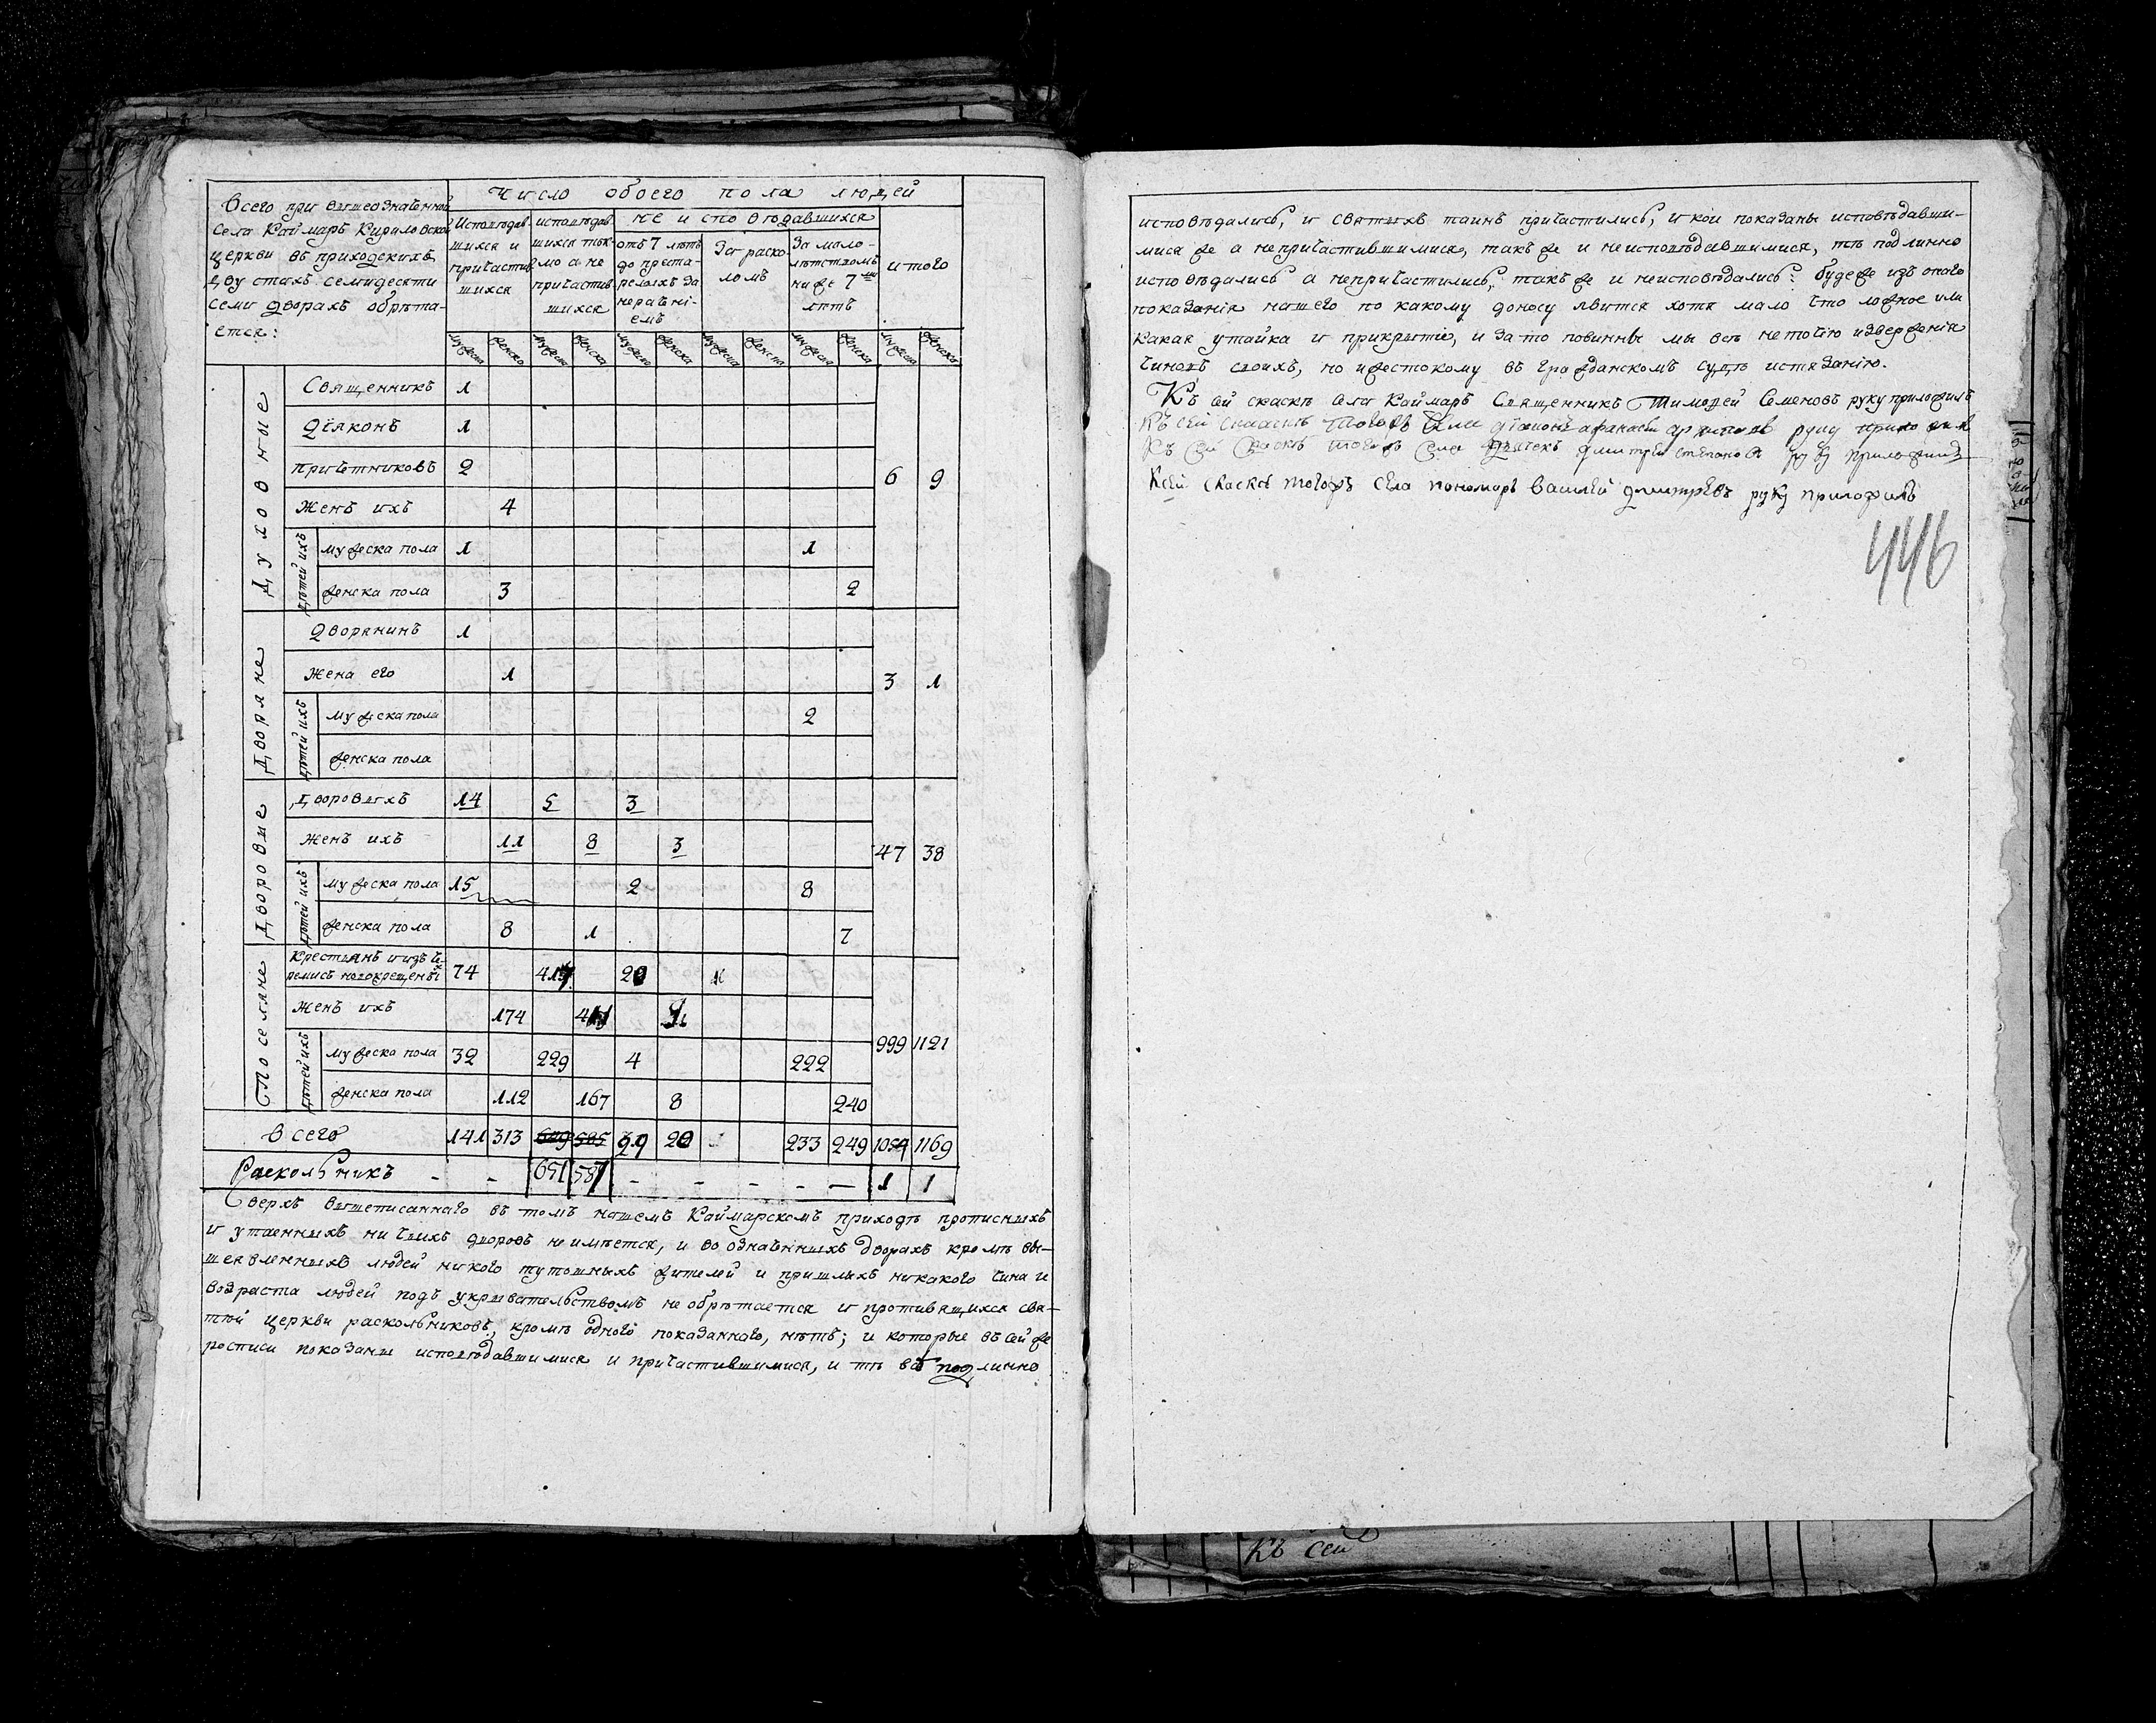 Всего при вышеозначенной
села Каймаръ Кириловской
церкви въ приходскихъ
двустахъ семидесяти
семи дворахъ обрѣта-
ется:
Число обоего пола людей
Исповѣдав-
шихся и
причастив
шихся
исповѣдав
шихся ток-
мо а не
причастив
шихся
не исповѣдавшихся
отъ 7 лѣтъ
до преста-
релыхъ за
нераченi-
емъ
За раско-
ломъ
За мало-
лѣтствомъ
ниже 7ми
лѣтъ
итого
мужеска женска мужеска женска мужеска женска мужеска женска мужеска женска мужеска женска
Духовные
Священникъ 1
Дiяконъ 1
Причетниковъ 2
6 9
Женъ ихъ 4
дѣтей ихъ
мужеска пола 1 1
женска пола 3 2
Дворяне
Дворянинъ 1
Жена его 1
3 1
дѣтей ихъ
мужеска пола 2
женска пола
Дворовые
Дворовыхъ 14 5 3
Женъ ихъ 11 8 3
47 38
дѣтей ихъ
мужеска пола 15 2 8
женска пола 8 1 7
Поселяне
Крестьянъ и изъ че-
ремисъ новокрещены 74
Женъ ихъ 174
999 1121
дѣтей ихъ
мужеска пола 32 229 4 222
женска пола 112 167 8 240
Всего 141 313 649 585 29 20 233 249 1054 1169
Раскольникъ - - 651 587 - - - - - 1 1
Сверхъ вышеписаннаго въ томъ нашемъ Каймарскомъ приходѣ прописныхъ
и утаенныхъ ни чьихъ дворовъ неимѣется, и во означенныхъ дворахъ кромѣ вы-
шеявленныхъ людей никого тутошныхъ жителей и пришлыхъ никакого чина и
возраста людей подъ укрывательствомъ не обрѣтается и противящихся свя-
тѣй церкви раскольниковъ, кромѣ одного показаннаго, нѣтъ; и которые въ сей же
росписи показаны исповѣдавшимися и причастившимися, и тѣ въ подлинно
исповѣдались, и святыхъ таинъ причастились, и кои показаны исповѣдавши-
мися же а непричастившимися, такъ же и неисповѣдавшимися, тѣ подлинно
исповѣдались а непричастились, такъ же и неисповѣдались: буде же изъ онаго
показанiя нашего по какому доносу явится хотя мало что ложное или
какая утайка и прикрытiе, и за то повинны мы всѣ неточiю извержения
чиновъ своихъ, но и жестокому въ гражданскомъ судѣ истязанiю.
Къ сей скаскѣ села Каймаръ Священникъ Тимофей Семеновъ руку приложилъ
Къ сей скаскѣ тогожъ села дiаконъ афанасей руку приложилъ
Къ сей скаскѣ тогожъ села дьячекъ дмитрей степановъ руку приложилъ
Ксей скаске тогожъ села пономарь василей дмитревъ руку приложилъ
446
Къ сей